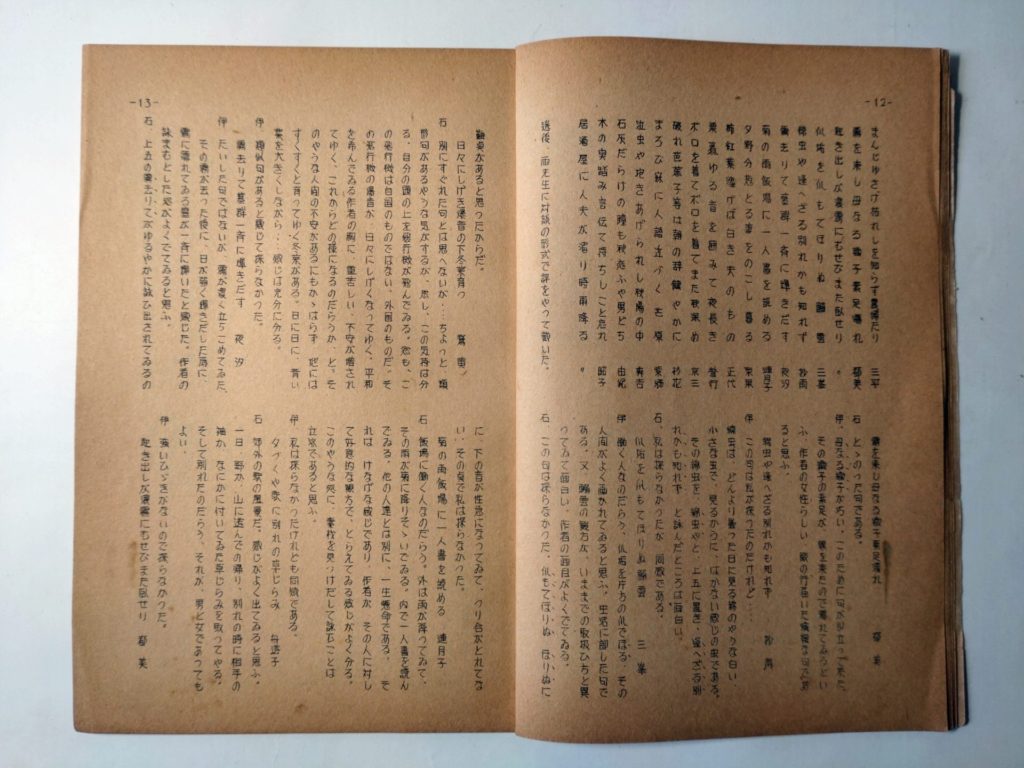 -12-
まんじゅさげ枯れしを知らず農婦たり 三平
霧を来し母なる鞠子素足濡れ 郁美
起き出しが濃霧にむせびまた臥せり 〃
仏垢を似もてほりぬ 鰯雲 三峯
綿虫や逢へざる別れかも知れず 砂雨
雲去りて葦群一斉に輝きだす 夜汐
菊の雨飯場に一人書を読める 蓮月子
夕野分抱とる妻をのこし喜る
蔦紅葉墜げば白き夫のもの 正代
栗煮ゆる音を囲みて夜長き
ボロを着てボロを負てまた秋深め 京三
破れ芭蕉子等は朝の辞健やかに 紗花
まろび寐に人語近づく吉原
泣虫や抱きあげられし牧場の中 寿杏
石灰だらけの瞳も秋逃ふや男どち 由紀
木の実踏み音伝て持ちしこと忘れ 昭子
居酒屋に人夫が溜り時雨降る 〃
選後、両先生に対談の形式で評をやって戴いた。
霧を来し母なる鞠子素足濡れ 郁美
石 とゝのった句である。
伊 母なる鞠子がいい、このために句が引立って来た。
その鞠子の素足が、霧を来たので濡れてゐるとい
ふ、作者の女性らしい、神の行届いた情報な句であ
ると思ふ。
綿虫や逢へざる別れかも知れず 砂雨
伊 この句は私が採ったのだけれど…
綿虫は、どんより曇った日に見る綿のやうな白い、
小さな虫で、見るからに、はかない感じの虫である。
その綿虫を、綿虫やと、上五に置き、逢へざる別
れかも知れず、と詠んだところは面白い。
石 私は採らなかったが、同感である。
仏垢を似もてほりぬ鰯雲 三峯
伊 働く人なのだらう、仏垢を庄ちの似でほる、その
人間がよく描かれてゐると思ふ。生活に即した句で
ある。又、鰯雲の観方が、いままでの取扱ひちと異
ってゐて面白い。作者の面目がよくでてゐる。
石 この句は採らなかった。似もてほりぬ、ほりぬに
-13-
難点があると思ったからだ。
日々にしげき爆音の下冬菜育つ
石 別にすぐれた句とは思へないが…ちょっと、類
型句があるやうな気がするが、然し、この気持は分
る。自分の頭の上を飛行機が飛んでゐる。恐も、こ
の飛行機は自国のものではない。外国のものだ。そ
の飛行機の爆音が、日々にしげくなってゆく。平和
を希んでゐる作者の胸に、重苦しい、不安が増され
てゆく。これからどの様になるのだらうか、と。そ
のやうな人間の不安があるにもかゝはらず、他には
すくすくと育ってゆく冬菜がある。日に日に、青い
葉を大きくしながら…。感じは充分に分る。
伊 類似句があると感じて採らなかった。
雲去りて葦群一斉に輝きだす 夜汐
伊 たいした句ではないが、靄が濃く立ちこめてゐた、
その靄が去った後に、日が弱く輝きだした為に、
靄に濡れてゐる葦が一斉に輝いたと感じた。作者の
詠まもとした処がよくでてゐると思ふ。
石 上五の雲去りてがゆるやかに詠ひ出されてゐるの
に、下の音が性急になってゐて、クリ合がとれてな
い、その臭で私は採らなかった。
菊の雨飯場に一人書を読める 蓮月子
石 飯場に働く人なのだらう。外は雨が降ってゐて、
その雨が菊に降りそゝいでゐる。内で一人書を読ん
でゐる。他の人達とは別に、一生懸命である。 そ
れは、けなげな感じであり、作者が、その人に対し
て好意的な観方で、とらえてゐる感じがよく分る。
このやうな処に、素材を見つけだして詠むことは
立派であると思ふ。
伊 私は採らなかったけれども同感である。
夕づくや歌に別れの草じらみ 舟遊子
石 郊外の歌の風景だ。感じがよく出てゐると思ふ。
一日、野か、山に遊んでの帰り、別れの時に相手の
袖か、なにかに付いてゐた草じらみを取ってやる。
そして別れたのだらう。それが、男と女であっても
よい。
伊 強いひゞきがないので採らなかった。
起き出しが濃霧にむせびまた臥せり 郁美